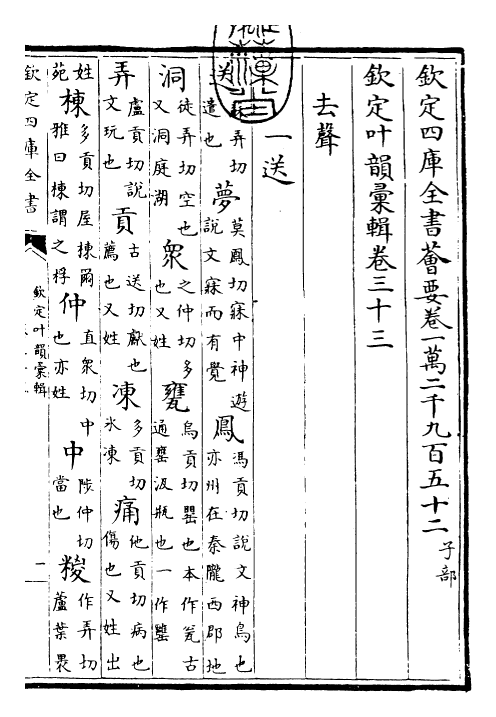 欽定四庫全書薈要卷一萬二千九百五十二 子部
欽定叶韻彚輯卷三十三
去聲
一送
送 弄切遣也 夢 莫鳳切寐中神遊說文寐而有覺 鳳 馮貢切說文神鳥也亦州在秦隴西郡地
洞 徒弄切空也又洞庭湖 衆 之仲切多也又姓 甕 烏貢切罌也本作瓮古通罋汲瓶也一作
弄 盧貢切說文玩也 貢 古送切獻也薦也又姓 凍 多貢切氷凍 痛 他貢切病也傷也又姓出
姓苑 棟 多貢切屋棟爾雅曰棟謂之桴 仲 直衆切中也亦姓 中 陟仲切當也 糉 作弄切蘆葉褁
欽定四庫全書
欽定叶韻彚輯
一